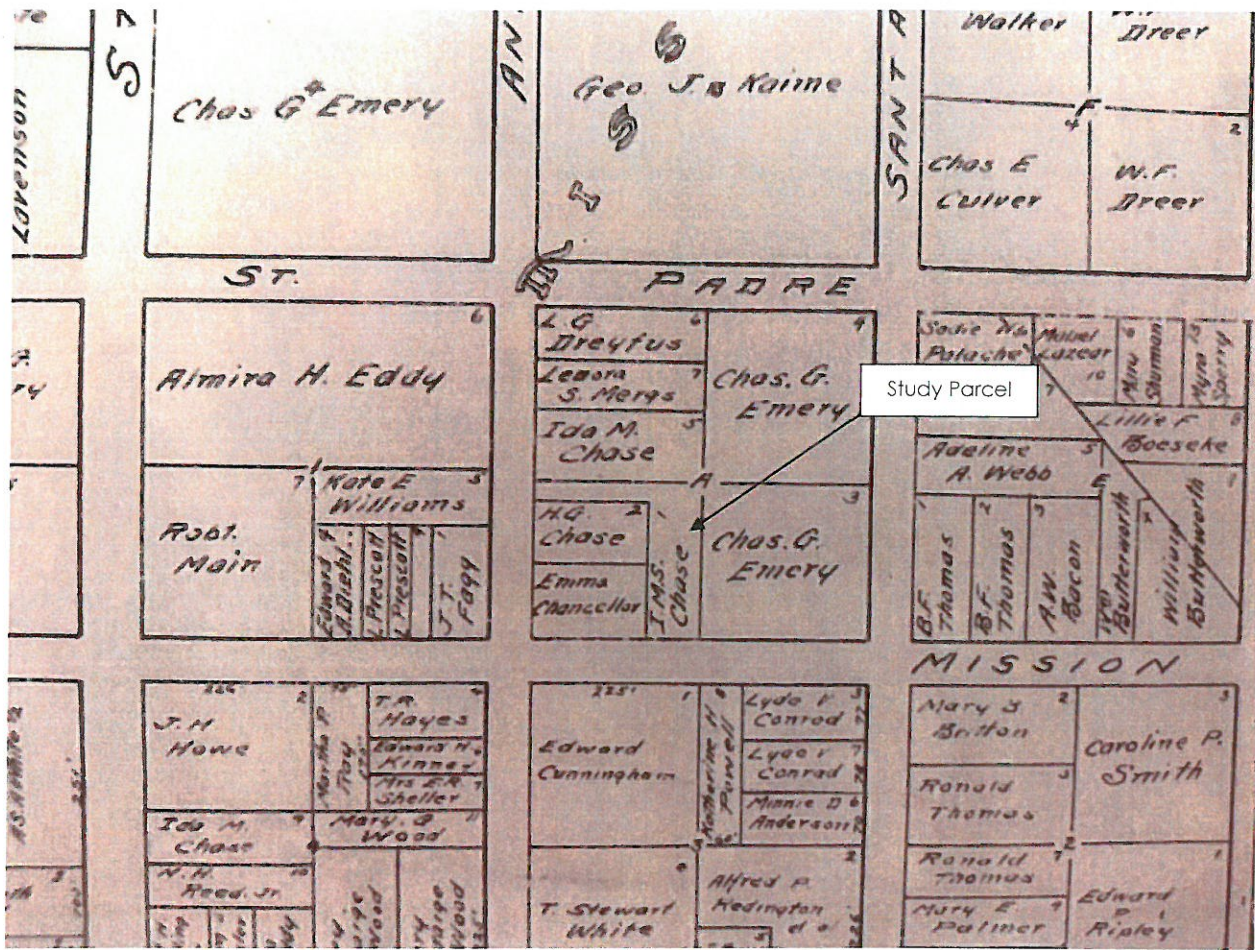 ST
Lovenson
Chas G Emery
4
AN
Geo. J. Kaime
MISS
SANTA
Walker
Dreer
F
4
2
Chas E
Culver
W.F.
Dreer
ST.
PADRE
6
Almira H. Eddy
7
Robt.
Main
Kate E
Williams
5
Edward
A. Diehl
4
L Prescott
L Prescott
J.T.
Fagg
1
L. G
Dreyfus
6
Leonora
S. Mergs
7
Ida M.
Chase
5
Chas. G.
Emery
4
A
H.G.
Chase
2
Emma
Chancellor
I.M.S.
Chase
1
Chas. G.
Emery
3
Study Parcel
Sadie
Patache
7
Mabel
Lazear
10
Minu
Shurman
6
Myra
Sperry
13
Lillie F
Boeseke
8
Adeline
A. Webb
5
E
B.F.
Thomas
1
B.F.
Thomas
2
A.W.
Bacon
3
Butterworth
William
Butterworth
1
MISSION
226'
J. H
Howe
2
Martha P
Tay
T.R.
Hayes
4
Edward H.
Kinney
Mrs E.R.
Sheller
Ida M.
Chase
9
Mary. G
Wood
11
N. H.
Reed. Jr.
10
Wood
Wood
225'
Edward
Cunningham
1
Katherine H
Powell
8
Lyda V
Conrod
3
77
Lyda V
Conrod
7
78
Minnie D
Anderson
6
T. Stewart
White
4
Alfred P.
Redington
et al
2
Mary S
Britton
2
Ronald
Thomas
3
Ronald
Thomas
7
Mary E
Palmer
9
Caroline P.
Smith
3
Edward
P
Ripley
1
251'